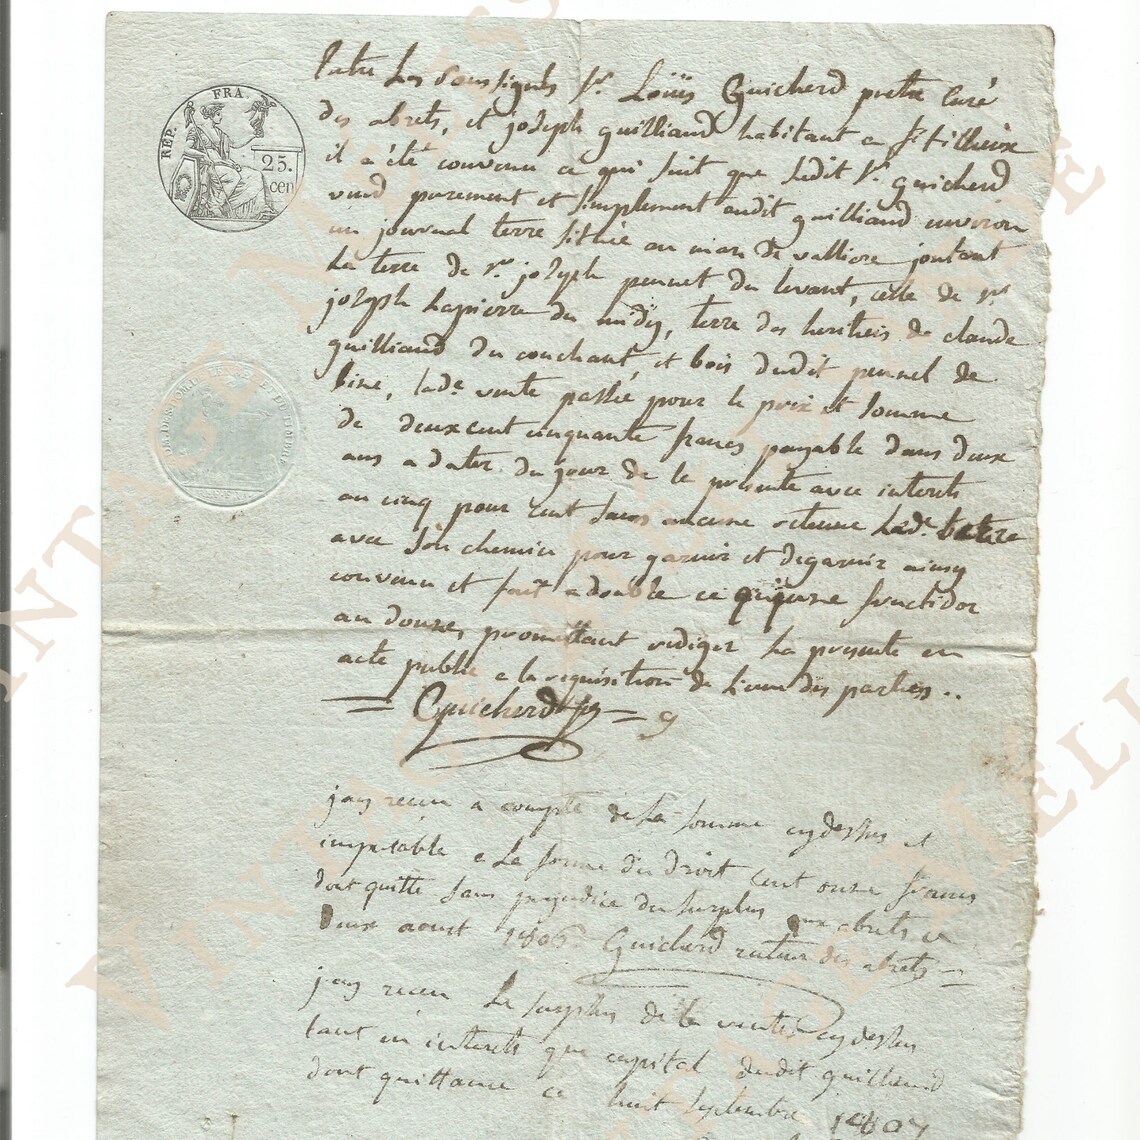 REP. FRA.
25.
cen
Entre Les Soussignés Sr. Loüis Guicherd pretre Curé
des abrets, et joseph guilliaud habitant a St
il a été convenu ce qui suit que ledit Sr. guicherd
vend purement et simplement audit guilliaud environ
un journal terre sithüe au mas de valliere joutant
La terre de Sr. joseph pennet du levant, celle de Sr
joseph Lapierre du midÿ, terre des heritiers de claude
guilliaud du couchant, et bois dudit pennet de
bise, lade. vente passée pour le prix et somme
de deux cent cinquante francs payable dans deux
ans a dater du jour de la presente avec interets
au cinq pour cent sans aucune retenue Lade. terre
avec son chemin pour garnir et degarnir ainsy
convenu et fait a double ce fructidor
an douze, promettant rediger La presente en
acte public a la requisition de L'une des parties ..
= Guicherd =
jay recu a compte de La somme cydessus et
imputable a La forme du droit cent onze francs
dont quitte sans prejudice du surplus aux abrets ce
Deux aoust 1806 Guicherd des abrets =
jay recu Le surplus de la vente cydessus
tant en interets que capital dudit guilliaud
dont quittance ce huit septembre 1807